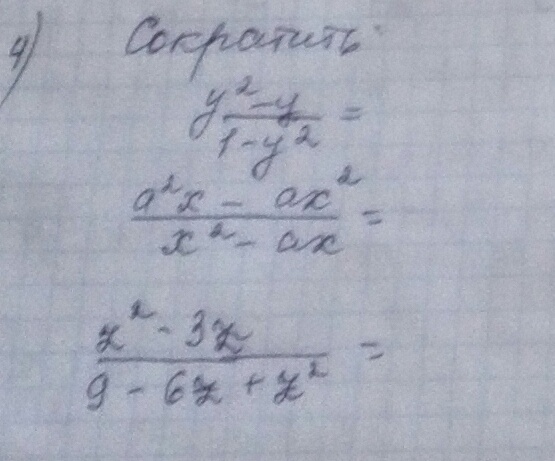 4) Сократить:
y² - y
1 - y² =
a²x - ax²
x² - ax =
z² - 3z
9 - 6z + z² =